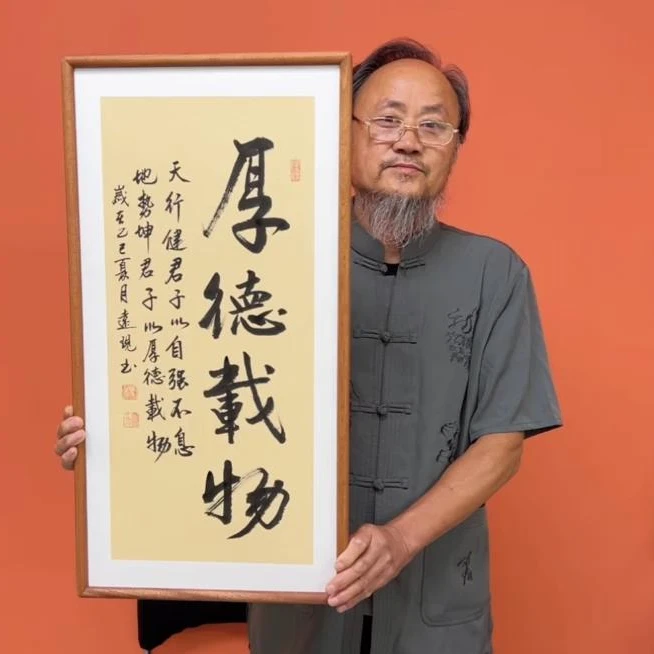 厚德載物
天行健君子以自强不息
地勢坤君子以厚德載物
歲在乙巳夏月遠觀书